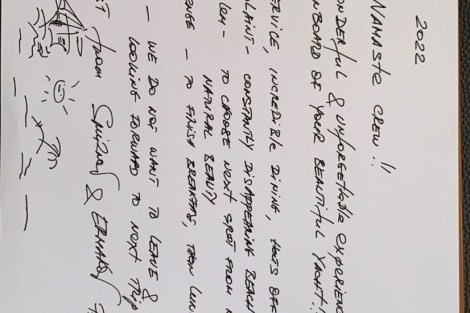 2022
NAMASTE CREW!!
ONDERFUL & UNFORGETTABLE EXPERIENC
ONBOARD OF YOUR BEAUTIFUL YACHT!!
SERVICE, INCREDIBLE DINING, HATS OFF
LAINT - CONSTANTLY DISAPPEARING BEACH
- TO CHOOSE NEXT SPOT FROM
NATURAL BEAUTY
ENGE - TO FINISH BREAKFAST, THEN LUN
- WE DO NOT WANT TO LEAVE &
LOOKING FORWARD TO NEXT TRIP
FROM &